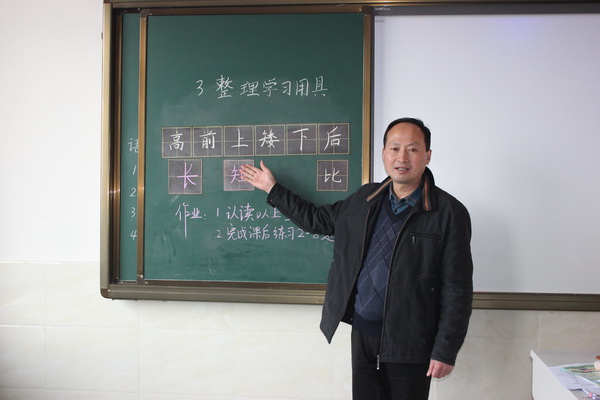 3 整理学习用具
高前上矮下后
长 短 比
作业: 1 认读以上
2 完成课后练习2-
语
1
2
3
4